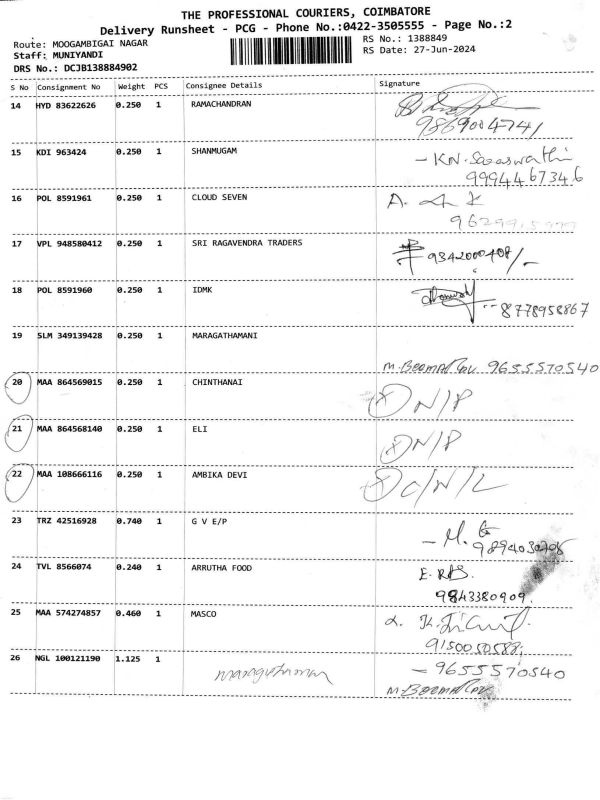 THE PROFESSIONAL COURIERS, COIMBATORE
Delivery Runsheet - PCG - Phone No.:0422-3505555 - Page No.:2
Route: MOOGAMBIGAI NAGAR
RS No.: 1388849
Staff: MUNIYANDI
RS Date: 27-Jun-2024
DRS No.: DCJB138884902
S No Consignment No Weight PCS Consignee Details Signature
14 HYD 83622626 0.250 1 RAMACHANDRAN
9869004741
15 KDI 963424 0.250 1 SHANMUGAM
- KN. Saraswathi
9994467346
16 POL 8591961 0.250 1 CLOUD SEVEN
A.
17 VPL 948580412 0.250 1 SRI RAGAVENDRA TRADERS
9342000408/-
18 POL 8591960 0.250 1 IDMK
8778958867
19 SLM 349139428 0.250 1 MARAGATHAMANI
9655570540
20 MAA 864569015 0.250 1 CHINTHANAI
N/P
21 MAA 864568140 0.250 1 ELI
N/P
22 MAA 108666116 0.250 1 AMBIKA DEVI
C/N/L
23 TRZ 42516928 0.740 1 G V E/P
- M.
24 TVL 8566074 0.240 1 ARRUTHA FOOD
E.
9843380909
25 MAA 574274857 0.460 1 MASCO
9150050588
26 NGL 100121190 1.125 1
- 9655570540